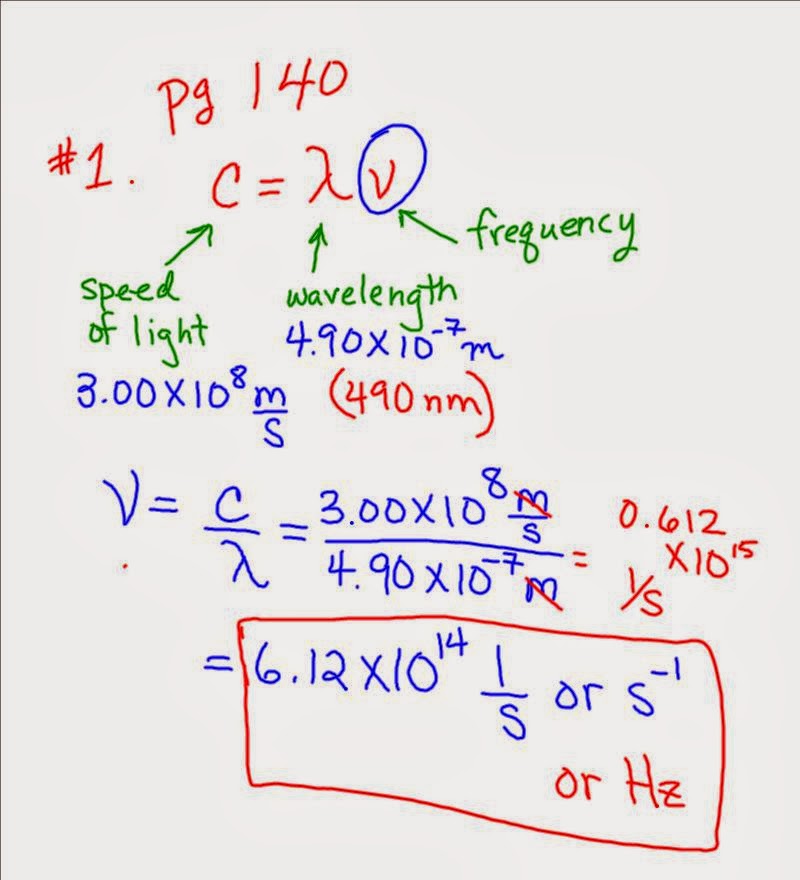 Pg 140
#1. c = λν
frequency
speed of light
3.00×10⁸ m/s
wavelength
4.90×10⁻⁷ m
(490 nm)
ν = c/λ = 3.00×10⁸ m/s / 4.90×10⁻⁷ m = 0.612 ×10¹⁵ 1/s
= 6.12×10¹⁴ 1/s or s⁻¹
or Hz